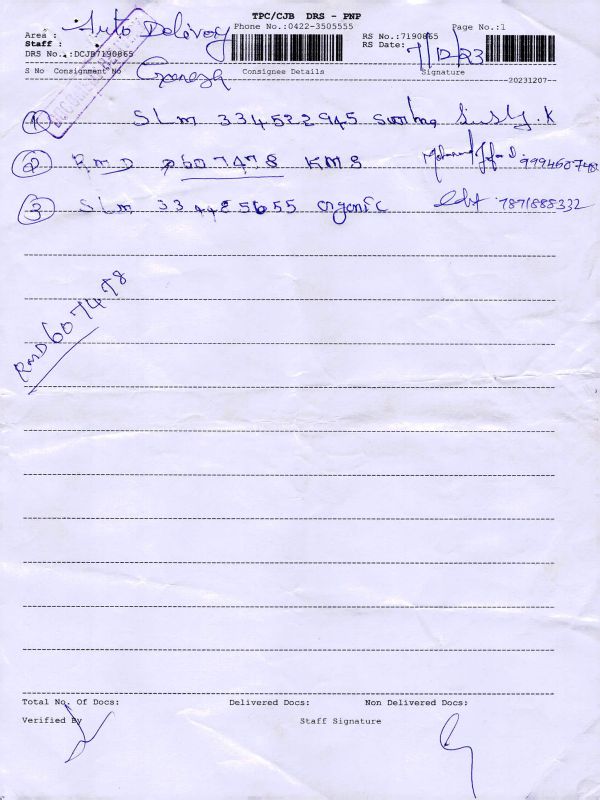 TPC/CJB DRS - PNP
Area : Auto Delivery Phone No.:0422-3505555 RS No.:7190865 Page No.:1
Staff : RS Date: 7/12/23
DRS No.:DCJB7190865
S No Consignment No Ganesh Consignee Details Signature
20231207--
1 SLM 334522945
2 RMD 607478 KMS
3 SLM 334425655 organic 7871888332
RMD607478
Total No. Of Docs: Delivered Docs: Non Delivered Docs:
Verified By Staff Signature